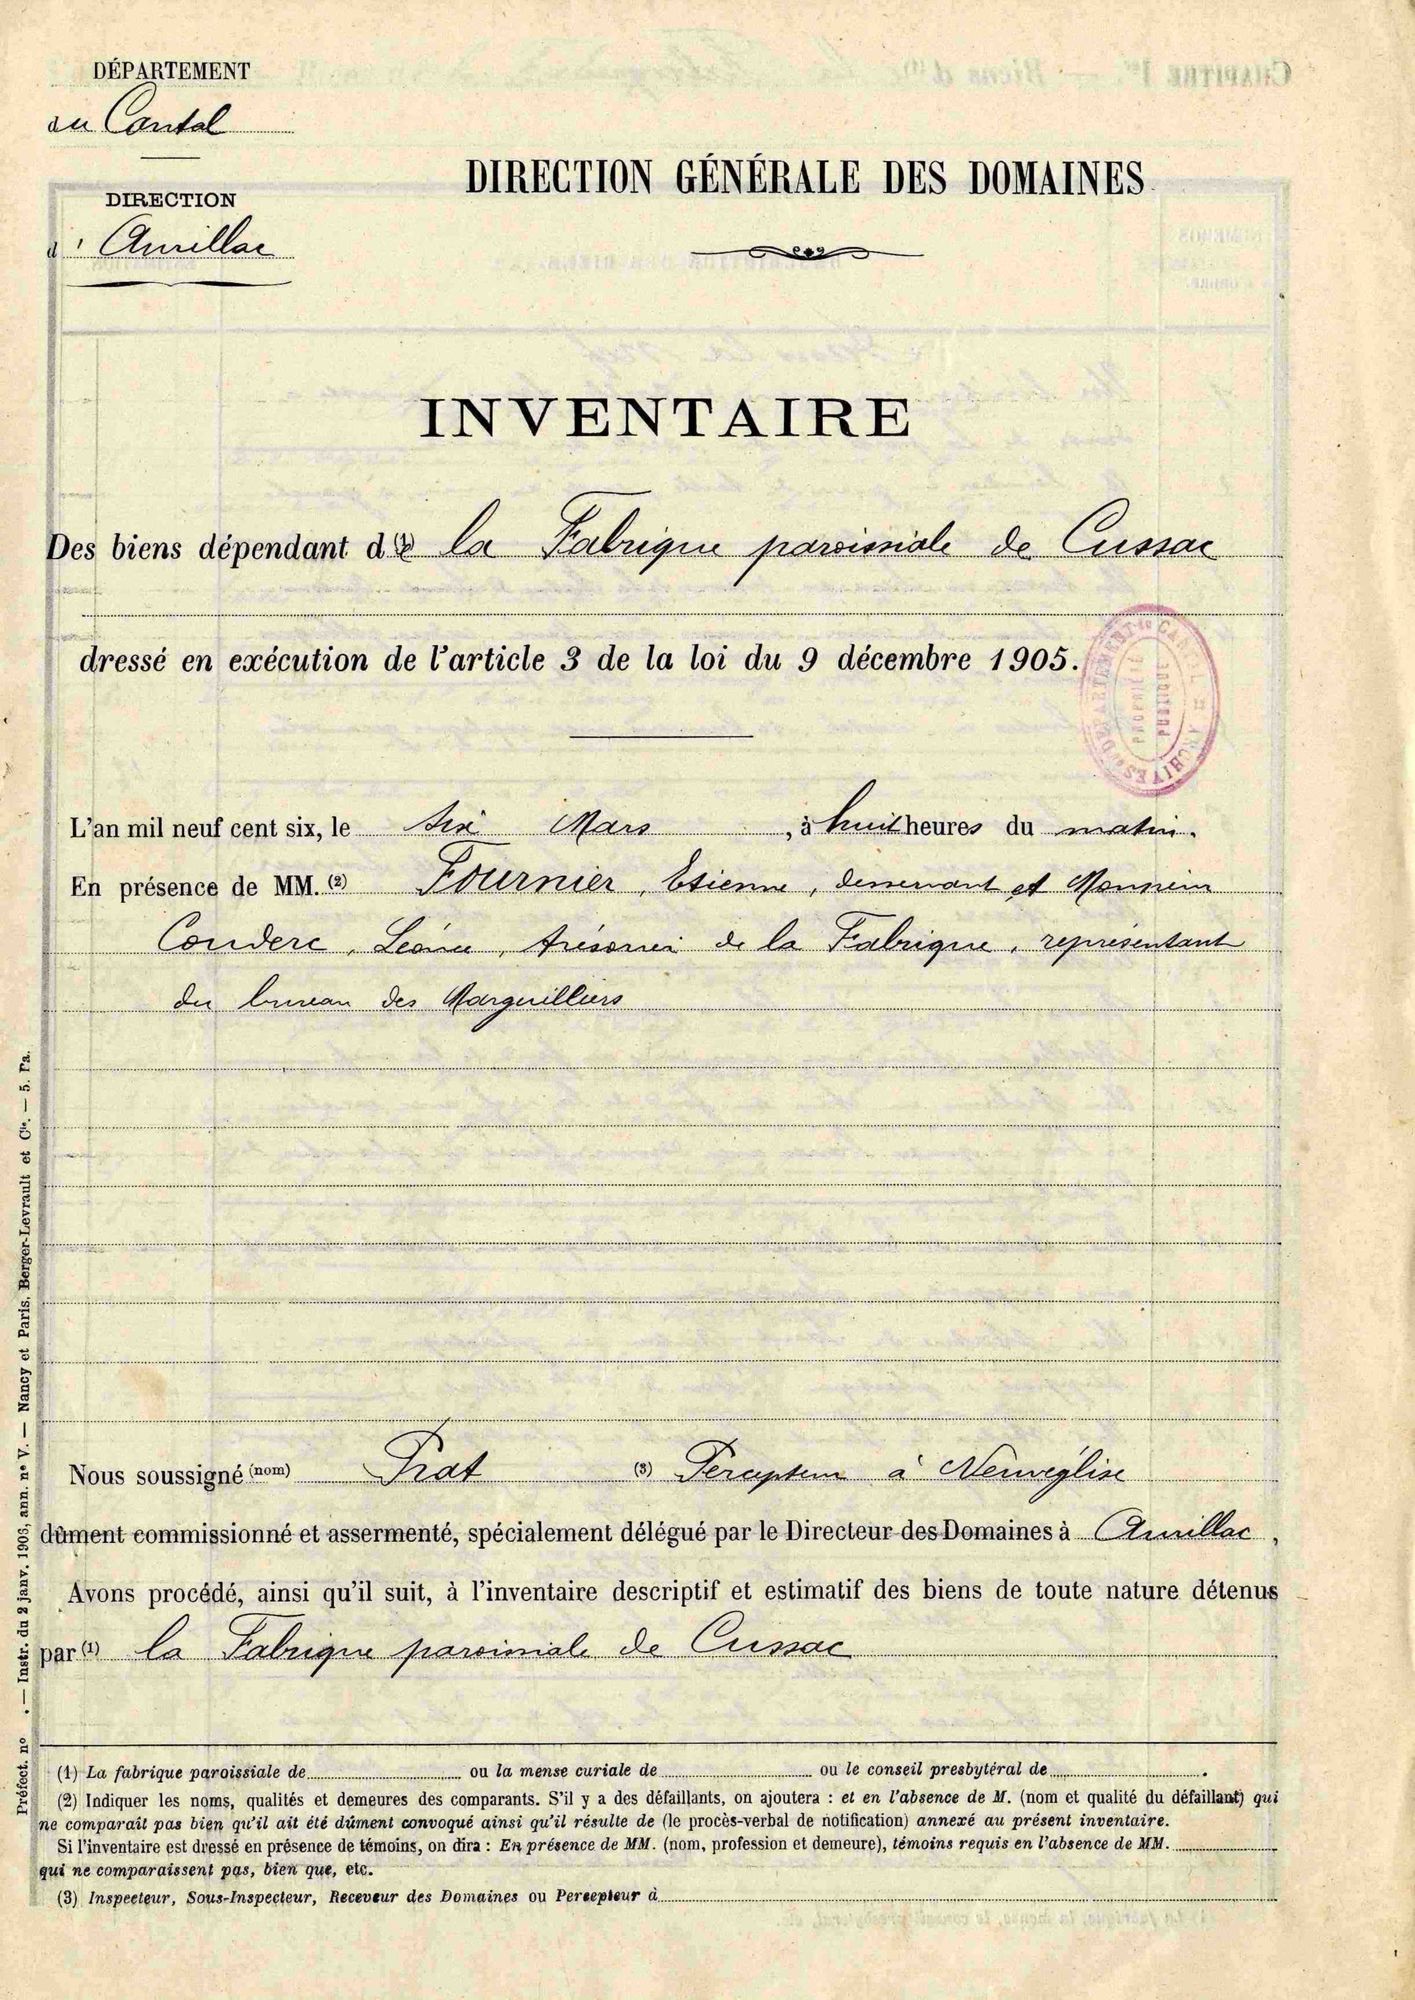 DÉPARTEMENT
du Cantal
DIRECTION
d' Aurillac
DIRECTION GÉNÉRALE DES DOMAINES
INVENTAIRE
Des biens dépendant de (1) la Fabrique paroissiale de Cussac
dressé en exécution de l'article 3 de la loi du 9 décembre 1905.
ARCHIVES DU DÉPARTEMENT du CANTAL
PROPRIÉTÉ
PUBLIQUE
L'an mil neuf cent six, le six Mars, à huit heures du matin.
En présence de MM. (2) Fournier, Etienne, desservant et Monsieur
Couderc, Léonce, trésorier de la Fabrique, représentant
du bureau des Marguilliers
Nous soussigné (nom) Prat (3) Percepteur à Neuvéglise
dûment commissionné et assermenté, spécialement délégué par le Directeur des Domaines à Aurillac,
Avons procédé, ainsi qu'il suit, à l'inventaire descriptif et estimatif des biens de toute nature détenus
par (1) la Fabrique paroissiale de Cussac
(1) La fabrique paroissiale de ou la mense curiale de ou le conseil presbytéral de .
(2) Indiquer les noms, qualités et demeures des comparants. S'il y a des défaillants, on ajoutera : et en l'absence de M. (nom et qualité du défaillant) qui
ne comparaît pas bien qu'il ait été dûment convoqué ainsi qu'il résulte de (le procès-verbal de notification) annexé au présent inventaire.
Si l'inventaire est dressé en présence de témoins, on dira : En présence de MM. (nom, profession et demeure), témoins requis en l'absence de MM.
qui ne comparaissent pas, bien que, etc.
(3) Inspecteur, Sous-Inspecteur, Receveur des Domaines ou Percepteur à
Préfect. no . — Instr. du 2 janv. 1906, ann. no V. — Nancy et Paris, Berger-Levrault et Cie. — 5. Pa.